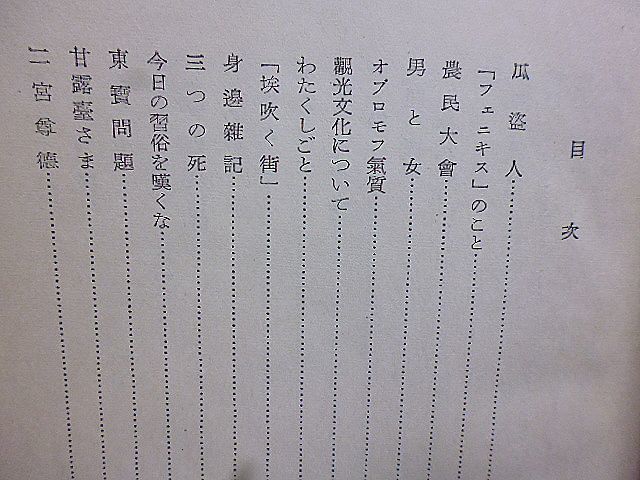 目次
瓜盗人
「フェニキス」のこと
農民大會
男と女
オブロモフ氣質
觀光文化について
わたくしごと
「埃吹く街」
身邊雜記
三つの死
今日の習俗を嘆くな
東寶問題
甘露臺さま
二宮尊德